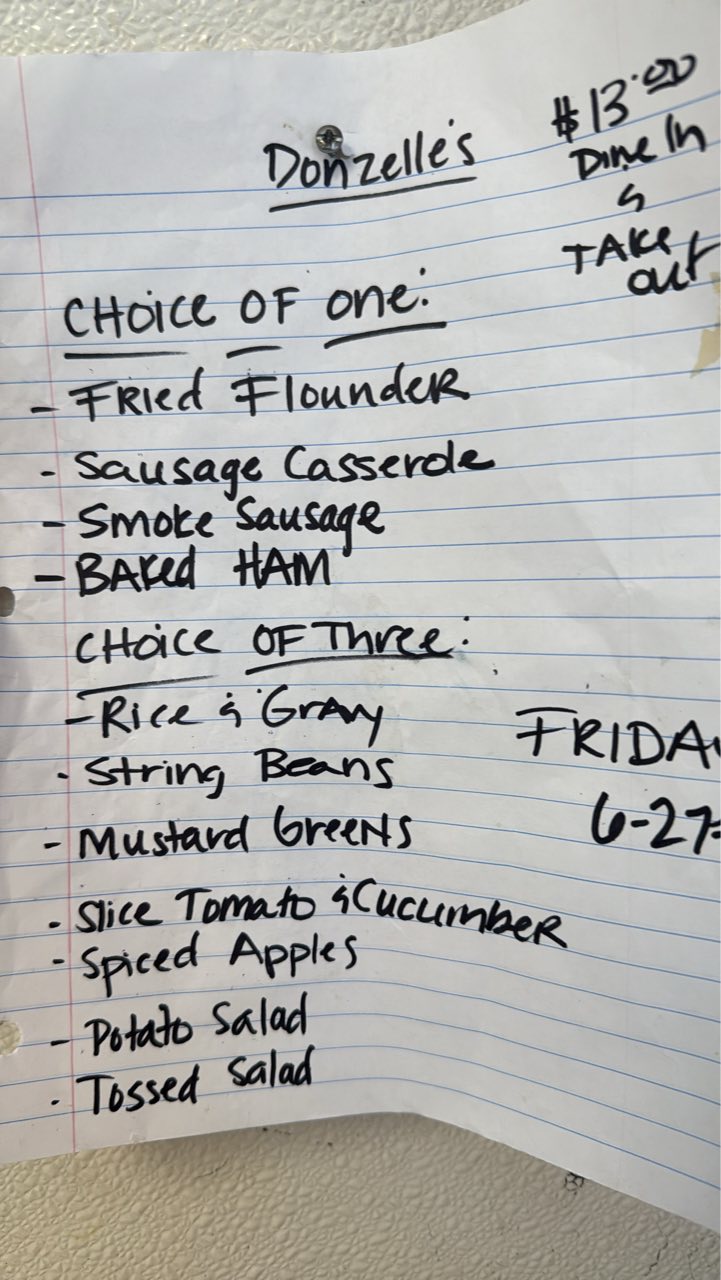 Donzelle's
$13.00
Dine In
&
TAKE
out
CHOICE OF one:
- FRied Flounder
- Sausage Casserole
- Smoke Sausage
- BAked HAM
CHOICE OF Three:
- Rice & Gravy
- String Beans
- Mustard Greens
- Slice Tomato & Cucumber
- Spiced Apples
- Potato Salad
- Tossed Salad
FRIDAY
6-27-